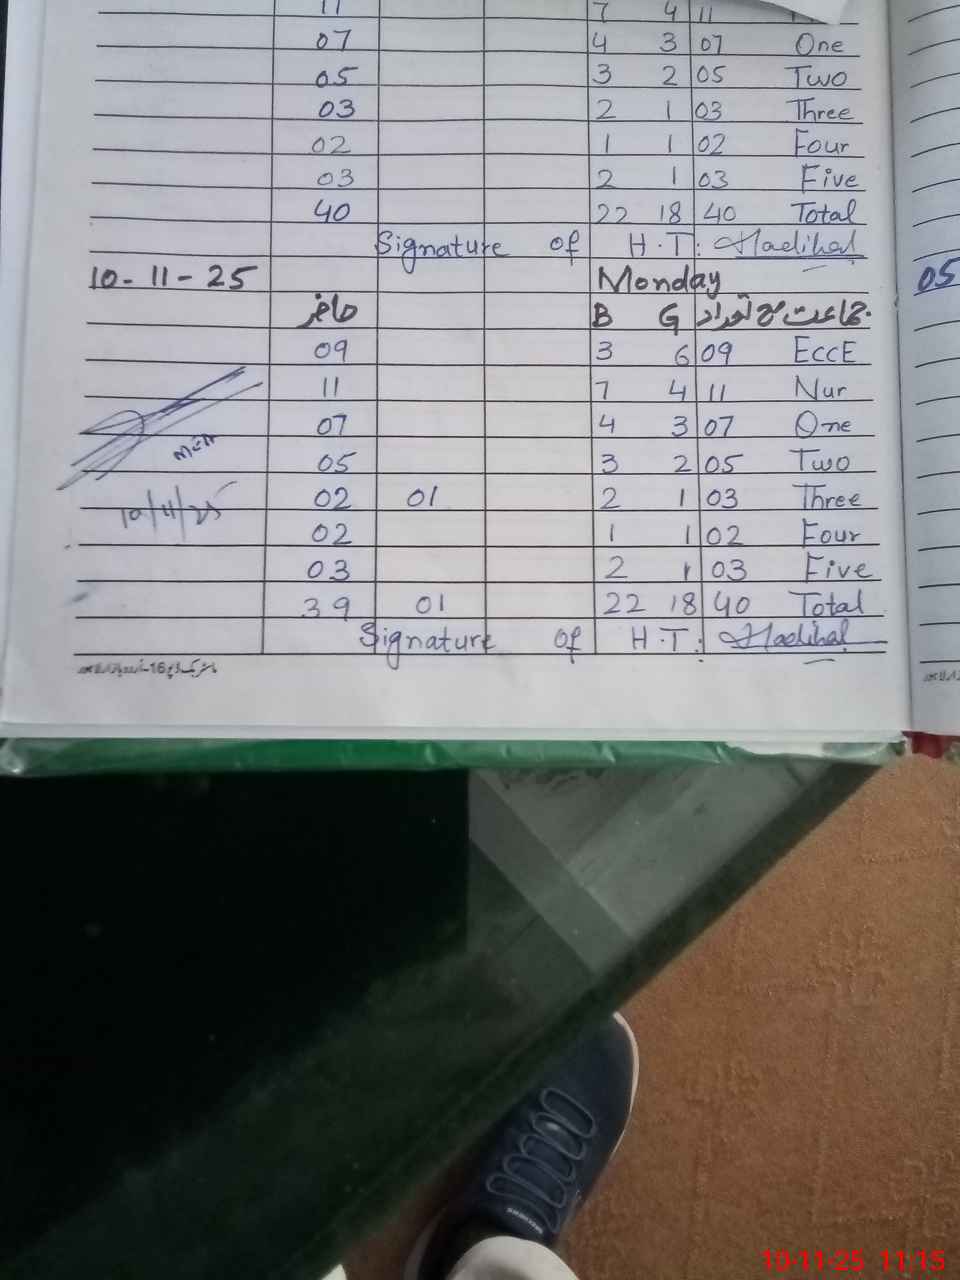 11 7 4 11
07 4 3 07 One
05 3 2 05 Two
03 2 1 03 Three
02 1 1 02 Four
03 2 1 03 Five
40 22 18 40 Total
Signature of H.T:
10-11-25 Monday
حاضر B G جماعت مع تعداد
09 3 6 09 EccE
11 7 4 11 Nur
07 4 3 07 One
05 3 2 05 Two
MEA
02 01 2 1 03 Three
10/11/25
02 1 1 02 Four
03 2 1 03 Five
39 01 22 18 40 Total
Signature of H.T:
05
10-11-25 11:15